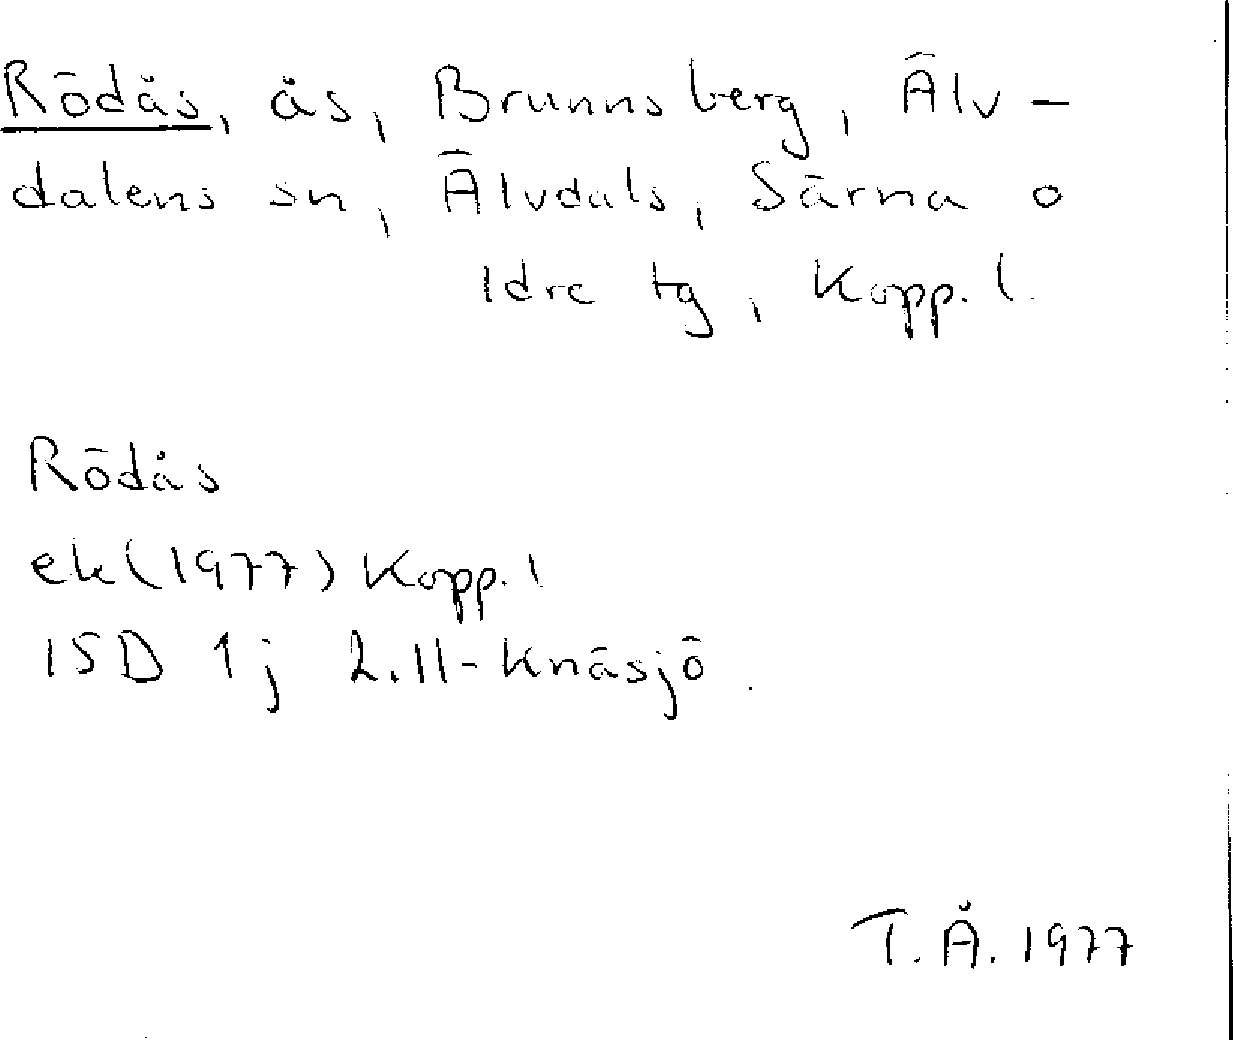 Rödås, ås, Brunnsberg, Älv-
dalens sn, Älvdals, Särna o
Idre tg, Kopp. l.
Rödås
ek (1977) Kopp. l
15D 1j 2.11-Knäsjö.
T.Å. 1977